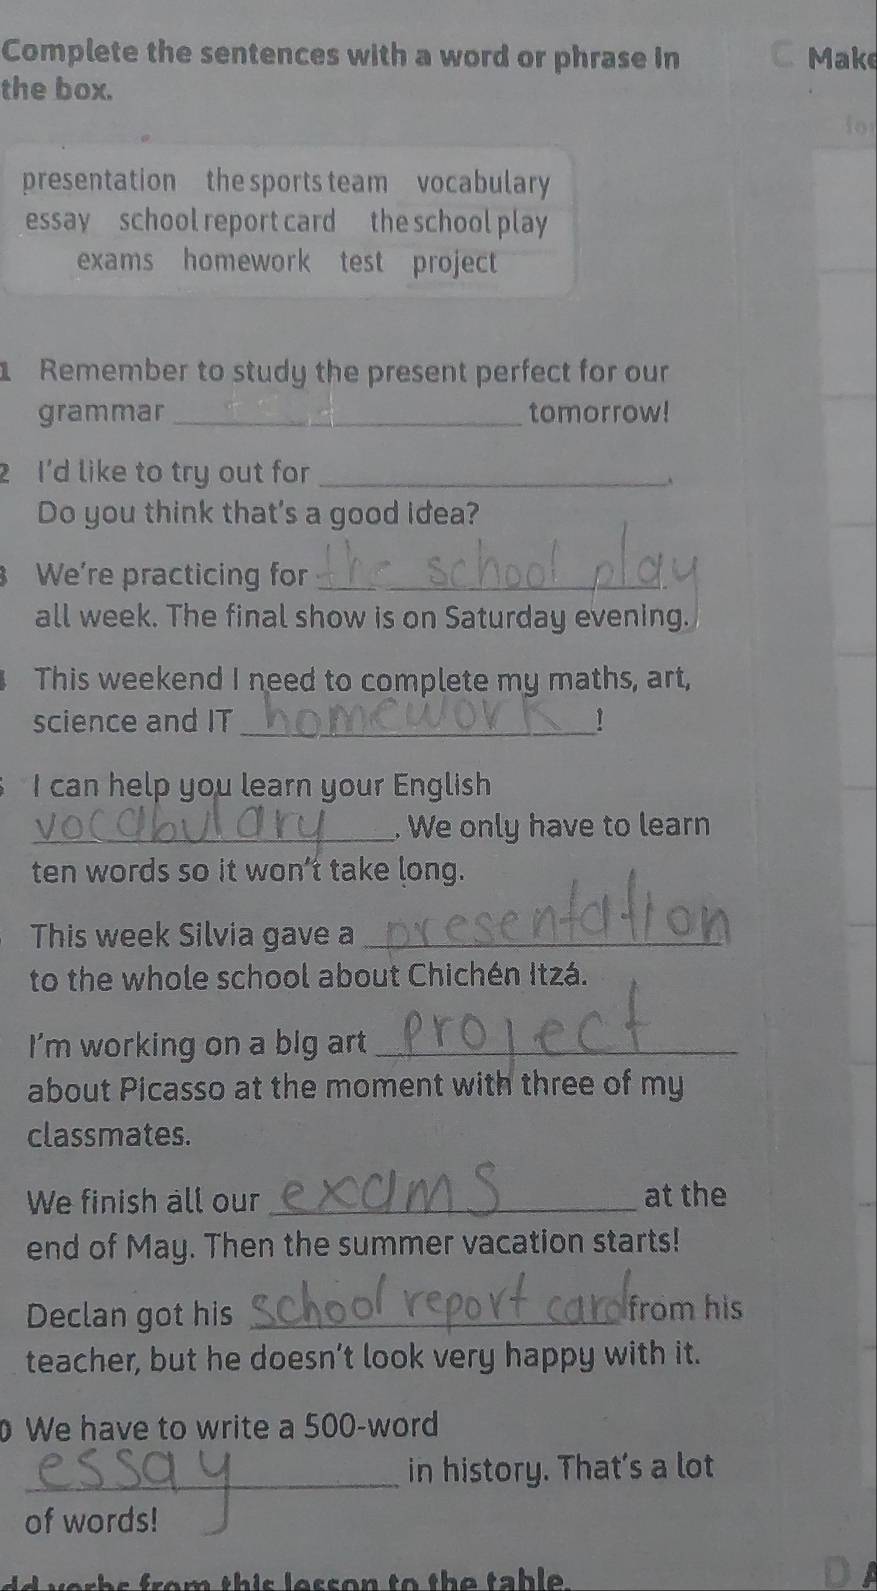 Complete the sentences with a word or phrase in
the box.
C Make
for
presentation the sports team vocabulary
essay school report card the school play
exams homework test project
1 Remember to study the present perfect for our
grammar ____________ tomorrow!
2 I'd like to try out for ____________.
Do you think that's a good idea?
3 We're practicing for the school play
all week. The final show is on Saturday evening.
This weekend I need to complete my maths, art,
science and IT homework!
I can help you learn your English
vocabulary. We only have to learn
ten words so it won't take long.
This week Silvia gave a presentation
to the whole school about Chichén Itzá.
I'm working on a big art project
about Picasso at the moment with three of my
classmates.
We finish all our exams at the
end of May. Then the summer vacation starts!
Declan got his school report card from his
teacher, but he doesn't look very happy with it.
0 We have to write a 500-word
essay in history. That's a lot
of words!
dd verbs from this lesson to the table.
D